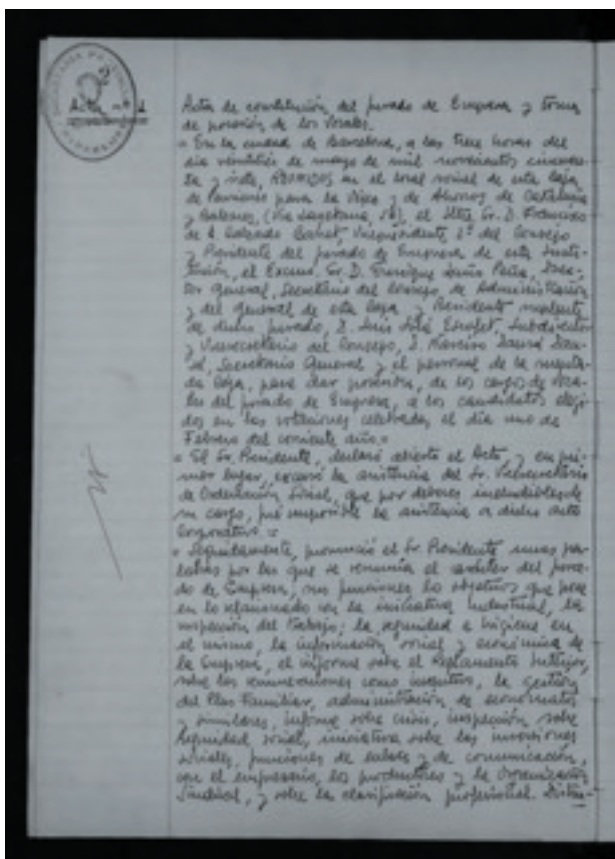 Acta nº 1
Acta de constitución del Jurado de Empresa y toma
de posesión de los Vocales.
= En la ciudad de Barcelona, a las trece horas del
día veintitrés de marzo de mil novecientos cincuen-
ta y siete, REUNIDOS en el local social de esta Caja
de Pensiones para la Vejez y de Ahorros de Cataluña
y Baleares, (Vía Layetana, 56), el Iltre. Sr. D. Francisco
de A. Vicepresidente 2º del Consejo
y Presidente del Jurado de Empresa de esta Insti-
tución, el Excmo. Sr. D. Enrique Luño Peña, Direc-
tor General, Secretario del Consejo de Administración
y del General de esta Caja, y Presidente suplente
de dicho Jurado, D. Luis José Escofet, Subdirector
y Vicesecretario del Consejo, D. Narciso
Secretario General y el personal de la
da Caja, para dar posesión, de los cargos de Voca-
les del Jurado de Empresa, a los candidatos elegi-
dos en las votaciones celebradas el día uno de
Febrero del corriente año. =
= El Sr. Presidente, declaró abierto el Acto y en pri-
mer lugar, excusó la asistencia del Sr. Vicesecretario
de Ordenación Social, que por deberes ineludibles de
su cargo, fué imposible la asistencia a dicho acto
Corporativo. =
= Seguidamente, pronunció el Sr. Presidente unas pa-
labras por las que se resumía el carácter del Jura-
do de Empresa, sus funciones, los objetivos que
en lo relacionado con la iniciativa industrial, la
inspección del trabajo; la seguridad e higiene en
el mismo, la información social y económica de
la Empresa, el informe sobre el Reglamento Interior,
sobre las remuneraciones como incentivo, la gestión
del Plus Familiar, administración de economatos
y similares, informe sobre crisis, inspección sobre
Seguridad Social, iniciativa sobre las inversiones
sociales, funciones de enlace y de comunicación,
con el empresario, los productores y la Organización
Sindical, y sobre la clasificación profesional.